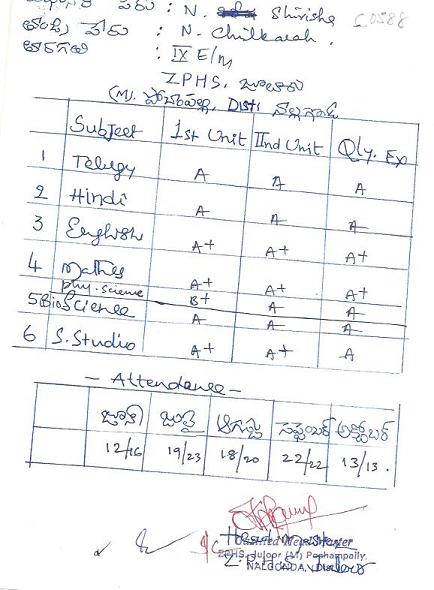 పేరు : N. Shirisha C0588
తండ్రి పేరు : N. Chilkaiah.
తరగతి : IX E/m
ZPHS, జూలూరు
(M). పోచంపల్లి, Dist: నల్లగొండ
Subject 1st Unit IInd Unit Qly. Ex
1 Telugu A A A
2 Hindi A A A
3 English A+ A+ A+
4 Maths A+ A+ A+
Phy. science B+ A A
5 Bio Science A A A
6 S. Studio A+ A+ A
— Attendance —
జూన్ జులై ఆగస్టు సెప్టెంబర్ అక్టోబర్
12/16 19/23 18/20 22/22 13/13.
Head Master
ZPHS, Juloor (M) Pochampally,
NALGONDA